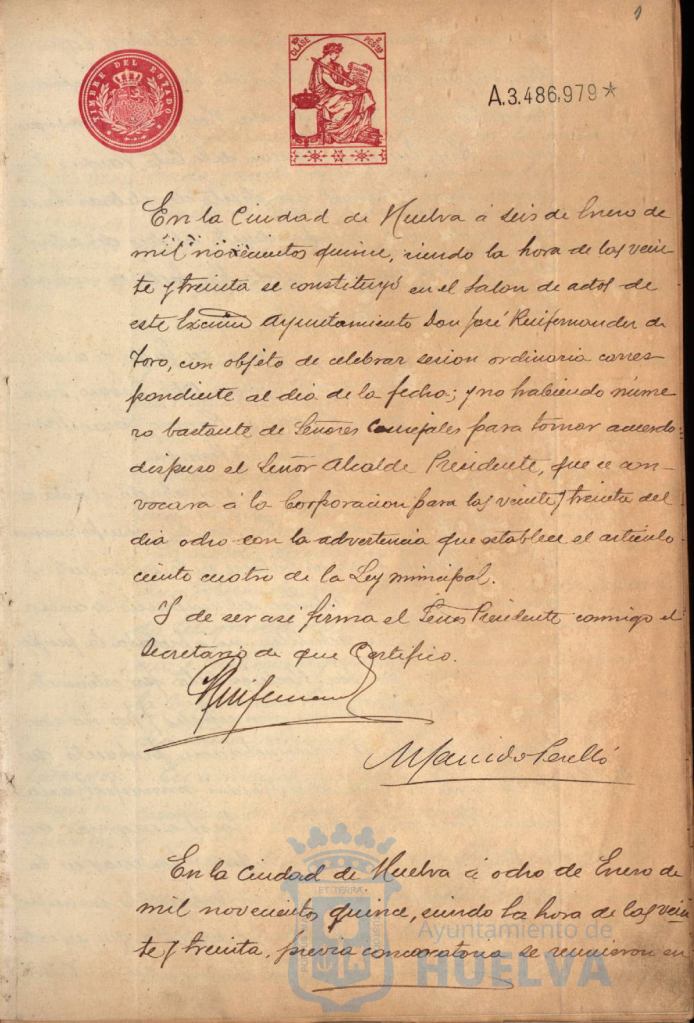 1
TIMBRE DEL ESTADO
CLASE
PESETA
A.3.486.979*
En la Ciudad de Huelva á seis de Enero de
mil novecientos quince, siendo la hora de las vein-
te y treinta se constituyó en el Salon de actos de
este Excmo Ayuntamiento Don José Ruifernandez de
Toro, con objeto de celebrar sesion ordinaria corres-
pondiente al dia de la fecha; y no habiendo núme-
ro bastante de Señores Concejales para tomar acuerdo
dispuso el Señor Alcalde Presidente, que se con-
vocara á la Corporacion para las veinte y treinta del
dia ocho con la advertencia que establece el artículo
ciento cuatro de la Ley municipal.
Y de ser asi firma el Señor Presidente conmigo el
Secretario de que Certifico.
Ruifernand
Perelló
En la Ciudad de Huelva á ocho de Enero de
mil novecientos quince, siendo la hora de las vein
te y treinta, previa convocatoria se reunieron en
Ayuntamiento de
HUELVA